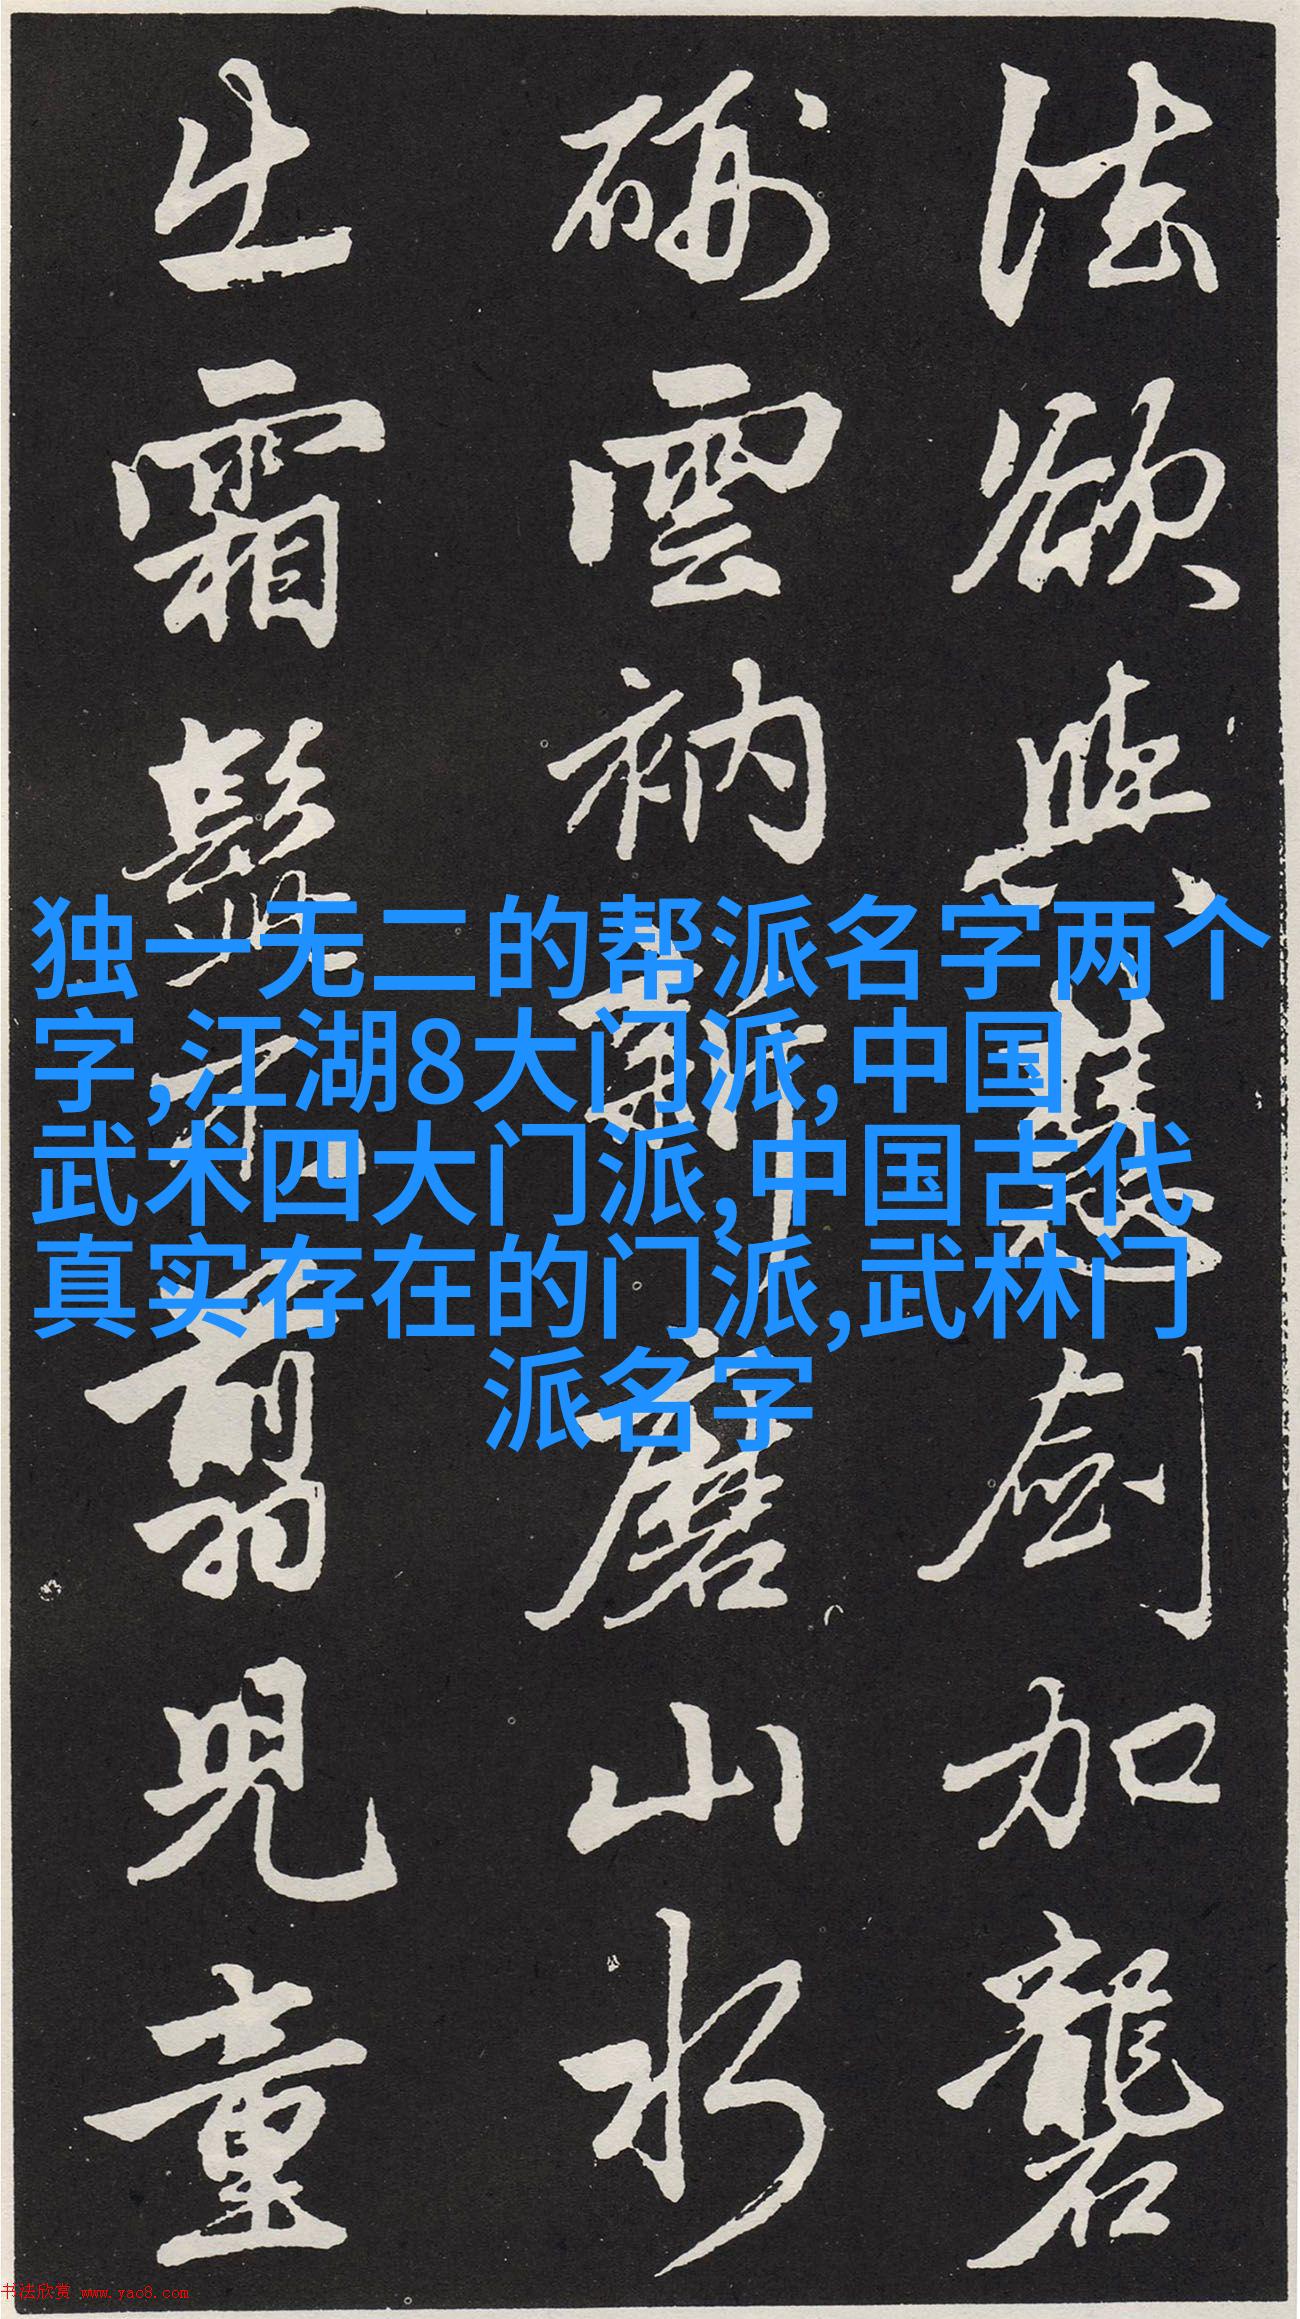 法欲與慧劍加礱
硎雲衲新磨山水
出霜髭不翦兒童
独一无二的帮派名字两个
字,江湖8大门派,中国
武术四大门派,中国古代
真实存在的门派,武林门
派名字
书法欣赏 www.yac8.com